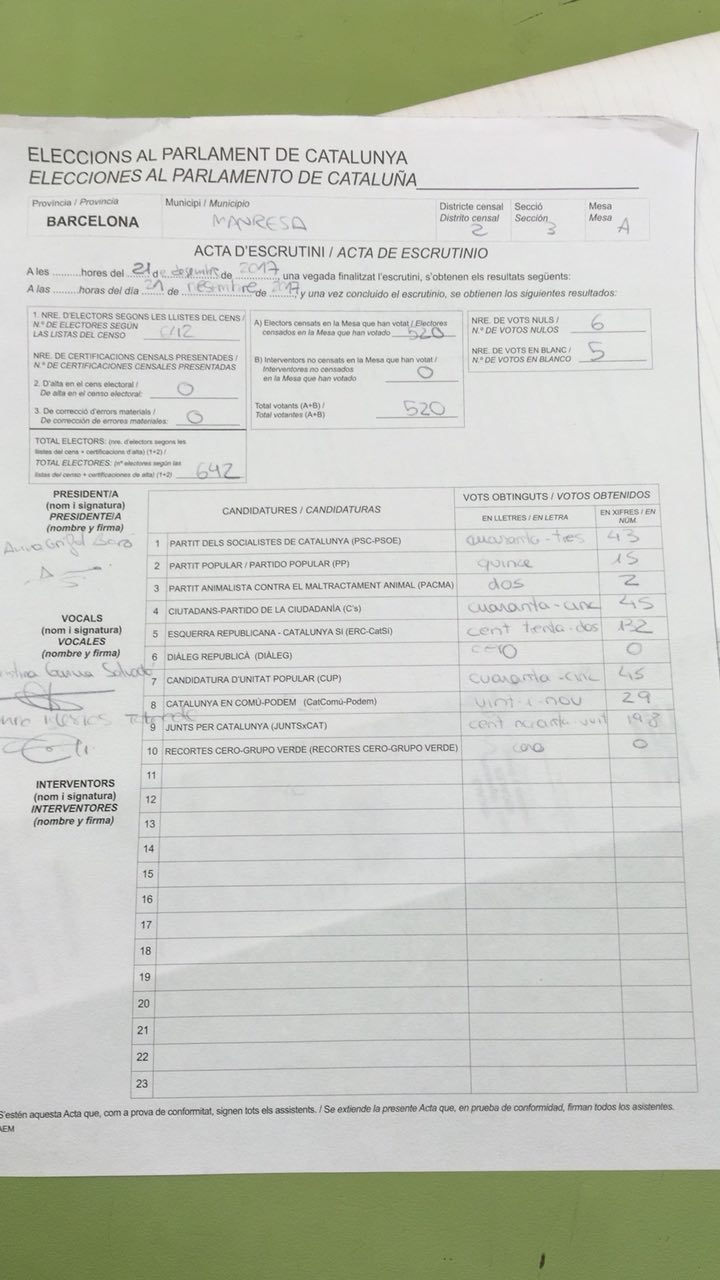 ELECCIONS AL PARLAMENT DE CATALUNYA
ELECCIONES AL PARLAMENTO DE CATALUÑA
Província / Provincia
BARCELONA
Municipi / Municipio
MANRESA
Districte censal
Distrito censal
2
Secció
Sección
3
Mesa
Mesa
A
ACTA D'ESCRUTINI / ACTA DE ESCRUTINIO
A les ..........hores del 21 de desembre de 2017, una vegada finalitzat l'escrutini, s'obtenen els resultats següents:
A las ..........horas del día 21 de desembre de 2017, y una vez concluido el escrutinio, se obtienen los siguientes resultados:
1. NRE. D'ELECTORS SEGONS LES LLISTES DEL CENS /
N.º DE ELECTORES SEGÚN
LAS LISTAS DEL CENSO
NRE. DE CERTIFICACIONS CENSALS PRESENTADES /
N.º DE CERTIFICACIONES CENSALES PRESENTADAS
2. D'alta en el cens electoral /
De alta en el censo electoral: 0
3. De correcció d'errors materials /
De corrección de errores materiales: 0
TOTAL ELECTORS: (nre. d'electors segons les
llistes del cens + certificacions d'alta) (1+2) /
TOTAL ELECTORES: (nº electores según las
listas del censo + certificaciones de alta) (1+2) 642
A) Electors censats en la Mesa que han votat / Electores
censados en la Mesa que han votado 520
B) Interventors no censats en la Mesa que han votat /
Interventores no censados
en la Mesa que han votado 0
Total votants (A+B) /
Total votantes (A+B) 520
NRE. DE VOTS NULS /
N.º DE VOTOS NULOS 6
NRE. DE VOTS EN BLANC /
N.º DE VOTOS EN BLANCO 5
PRESIDENT/A
(nom i signatura)
PRESIDENTE/A
(nombre y firma)
VOCALS
(nom i signatura)
VOCALES
(nombre y firma)
INTERVENTORS
(nom i signatura)
INTERVENTORES
(nombre y firma)
CANDIDATURES / CANDIDATURAS
VOTS OBTINGUTS / VOTOS OBTENIDOS
EN LLETRES / EN LETRA
EN XIFRES / EN NÚM.
1 PARTIT DELS SOCIALISTES DE CATALUNYA (PSC-PSOE) quaranta-tres 43
2 PARTIT POPULAR / PARTIDO POPULAR (PP) quince 15
3 PARTIT ANIMALISTA CONTRA EL MALTRACTAMENT ANIMAL (PACMA) dos 2
4 CIUTADANS-PARTIDO DE LA CIUDADANÍA (C's) cuaranta-cinc 45
5 ESQUERRA REPUBLICANA - CATALUNYA SÍ (ERC-CatSí) cent trenta-dos 132
6 DIÀLEG REPUBLICÀ (DIÀLEG) cero 0
7 CANDIDATURA D'UNITAT POPULAR (CUP) cuaranta-cinc 45
8 CATALUNYA EN COMÚ-PODEM (CatComú-Podem) vint-i-nou 29
9 JUNTS PER CATALUNYA (JUNTSxCAT) cent noranta-vuit 198
10 RECORTES CERO-GRUPO VERDE (RECORTES CERO-GRUPO VERDE) cero 0
11
12
13
14
15
16
17
18
19
20
21
22
23
S'estén aquesta Acta que, com a prova de conformitat, signen tots els assistents. / Se extiende la presente Acta que, en prueba de conformidad, firman todos los asistentes.